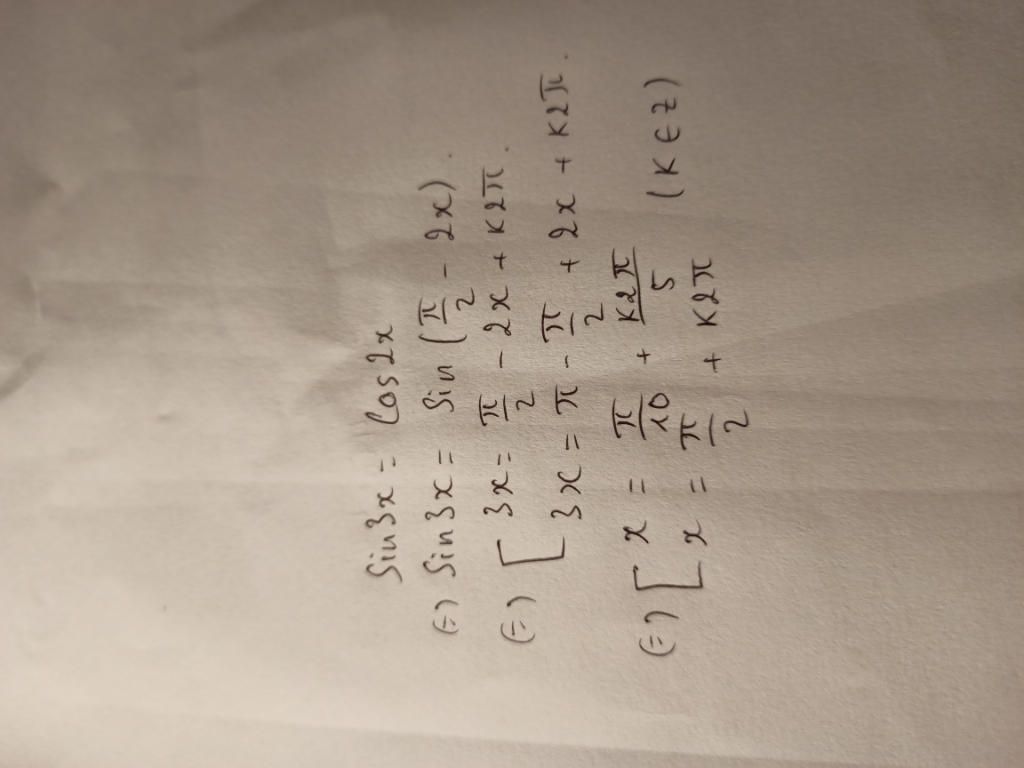 Sin3x = Cos2x
(=) Sin3x = Sin (π/2 - 2x).
(=) [ 3x = π/2 - 2x + K2π.
3x = π - π/2 + 2x + K2π.
(=) [ x = π/10 + K2π/5
x = π/2 + K2π (K ∈ Z)